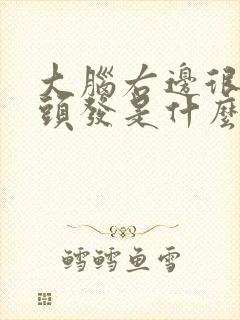 大腦右邊很
頭發是什麼
鱈鱈鱼雪